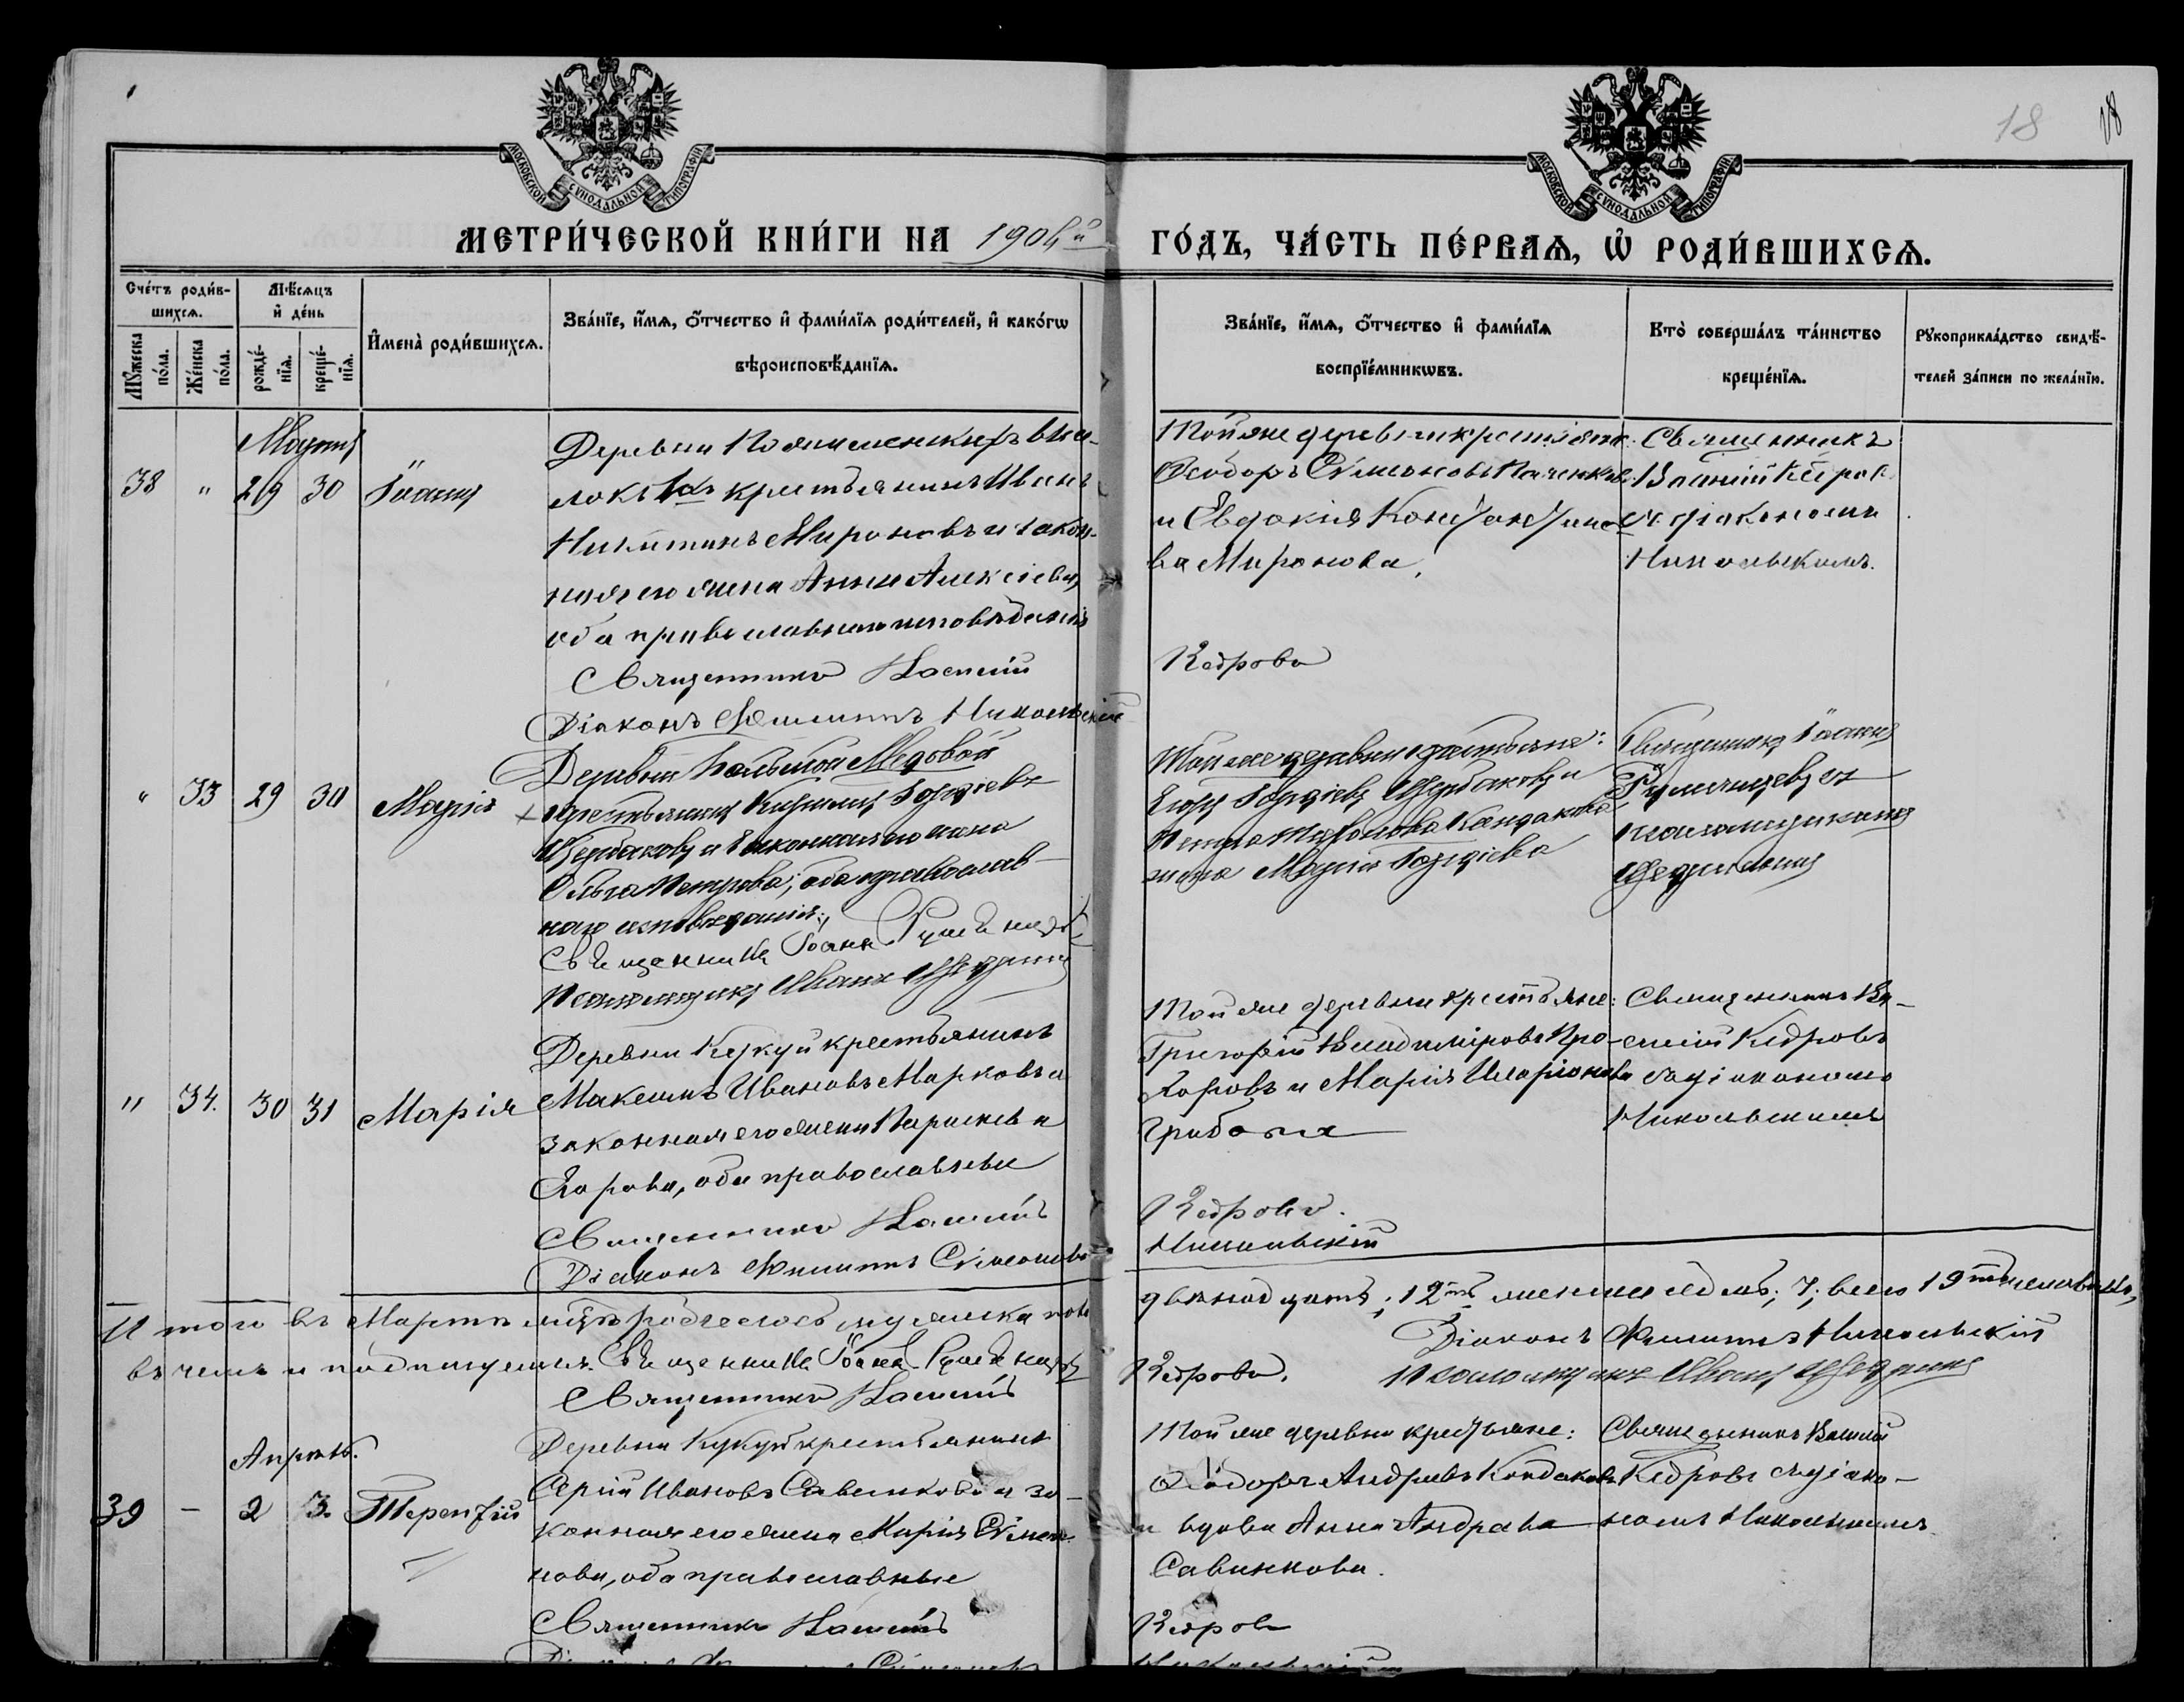 18
18
МОСКОВСКОЙ СѴНОДАЛЬНОЙ ТИПОГРАФІИ
МОСКОВСКОЙ СѴНОДАЛЬНОЙ ТИПОГРАФІИ
МЕТРИ́ЧЕСКОЙ КНИ́ГИ НА 1904й ГО́ДЪ, ЧА́СТЬ ПЕ́РВАѦ, Ѡ҆ РОДИ́ВШИХСѦ.
Сче́тъ роди́в-
шихсѧ.
Мꙋ́жеска по́ла.
Же́нска по́ла.
Мѣ́сѧцъ
и҆ де́нь
рожде́-
нїѧ.
креще́-
нїѧ.
И҆мена̀ роди́вшихсѧ.
Зва́нїе, и҆́мѧ, ѻ҆́тчество и҆ фами́лїѧ роди́телей, и҆ како́гѡ
вѣроисповѣ́данїѧ.
Зва́нїе, и҆́мѧ, ѻ҆́тчество и҆ фами́лїѧ
воспрїе́мникѡвъ.
Кто̀ соверша́лъ та́инство
креще́нїѧ.
Рꙋкоприкла́дство свидѣ́-
телей за́писи по жела́нїю.
Мартъ
38 " 29 30 Іоаннъ
Деревни
крестьянинъ Иванъ
Никитинъ Мироновъ и закон-
ная его жена Анна Алексіева,
оба православнаго исповѣданія
Священникъ Василій
Діаконъ Филиппъ Никольскій
Той же деревни крестьяне:
Ѳеодоръ Сѵмеоновъ
и Евдокія Константино-
ва Миронова.
Кедровъ
Священникъ
Василій Кедровъ
съ діакономъ
Никольскимъ.
" 33 29 30 Марія
Деревни Большой Медовой
крестьянинъ Кириллъ Гордіевъ
Щербаковъ и законная его жена
Ольга Петрова; оба православ-
наго исповѣданія;
Священникъ Іоаннъ Румянцевъ
Псаломщикъ Иванъ
Той же деревни крестьяне:
Егоръ Гордіевъ Щербаковъ и
Кандакова
жена Марія Гордіева
Священникъ Іоаннъ
Румянцевъ съ
псаломщикомъ
" 34. 30 31 Марія
Деревни Кукуй крестьянинъ
Максимъ Ивановъ Марковъ и
законная его жена Параскева
Егорова, оба православные
Священникъ Василій
Діаконъ Филиппъ Сѵмеоновъ
Той же деревни крестьяне:
Григорій Владиміровъ Про-
хоровъ и Марія Иларіонова
Кедровъ.
Никольскій
Священникъ Ва-
силій Кедровъ
съ діакономъ
Никольскимъ
Итого въ Мартѣ мцѣ родилось мужеска пола двѣнадцать; 12ть женска седмь; 7; всего 19ть человѣкъ,
въ чемъ и подпишемся. Священникъ Іоаннъ Румянцевъ
Діаконъ Филиппъ Никольскій
Священникъ Василій Кедровъ.
Псаломщикъ Иванъ
Апрѣль.
39 – 2 3. Терентій
Деревни Кукуй крестьянинъ
Сергій Ивановъ Савенковъ и за-
конная его жена Марія Сѵмео-
нова, оба православные
Священникъ Василій
Той же деревни крестьяне:
Ѳеодоръ Андреевъ Кондаковъ
и вдова Анна Андреева
Савинкова.
Кедровъ
Никольскій
Священникъ Василій
Кедровъ съ діако-
номъ Никольскимъ